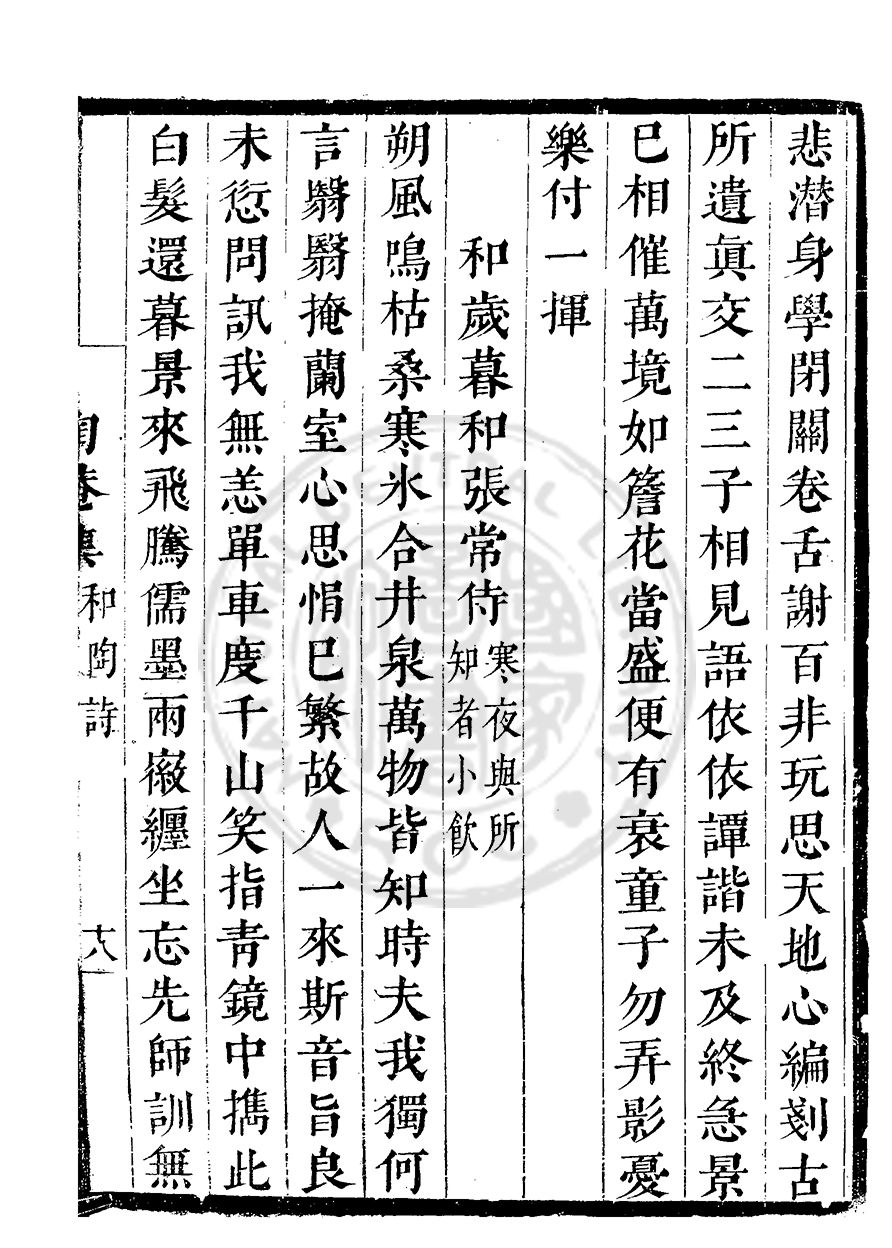 悲潛身學閉關卷舌謝百非玩思天地心編剗古
所遺眞交二三子相見語依依譚諧未及終急景
巳相催萬境如簷花當盛便有衰童子勿弄影憂
樂付一揮
和歲暮和張常侍寒夜與所知者小飮
朔風鳴枯桑寒氷合井泉萬物皆知時夫我獨何
言翳翳掩蘭室心思悁巳繁故人一來斯音旨良
未愆問訊我無恙單車度千山笑指靑鏡中携此
白髮還暮景來飛騰儒墨兩嶶纆坐忘先師訓無
陶菴集 和陶詩 十八